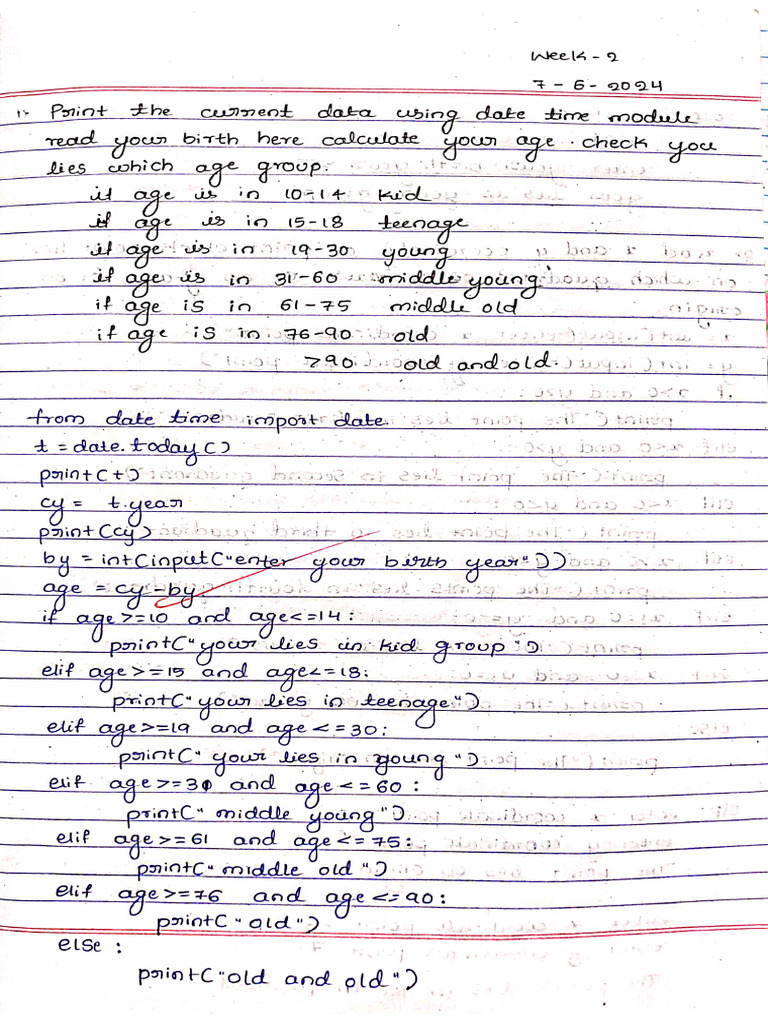 Week-2
7-6-2024
1:- Print the current data using date time module
read your birth here calculate your age. check you
lies which age group.
if age is in 10-14 kid
if age is in 15-18 teenage
if age is in 19-30 young
if age is in 31-60 middle young
if age is in 61-75 middle old
if age is in 76-90 old
>90 old and old.
from date time import date
t = date.today()
print(t)
cy = t.year
print(cy)
by = int(input("enter your birth year"))
age = cy-by
if age>=10 and age<=14:
print("your lies in kid group")
elif age>=15 and age<=18:
print("your lies in teenage")
elif age>=19 and age<=30:
print("your lies in young")
elif age>=30 and age<=60:
print("middle young")
elif age>=61 and age<=75:
print("middle old")
elif age>=76 and age<=90:
print("old")
else:
print("old and old")